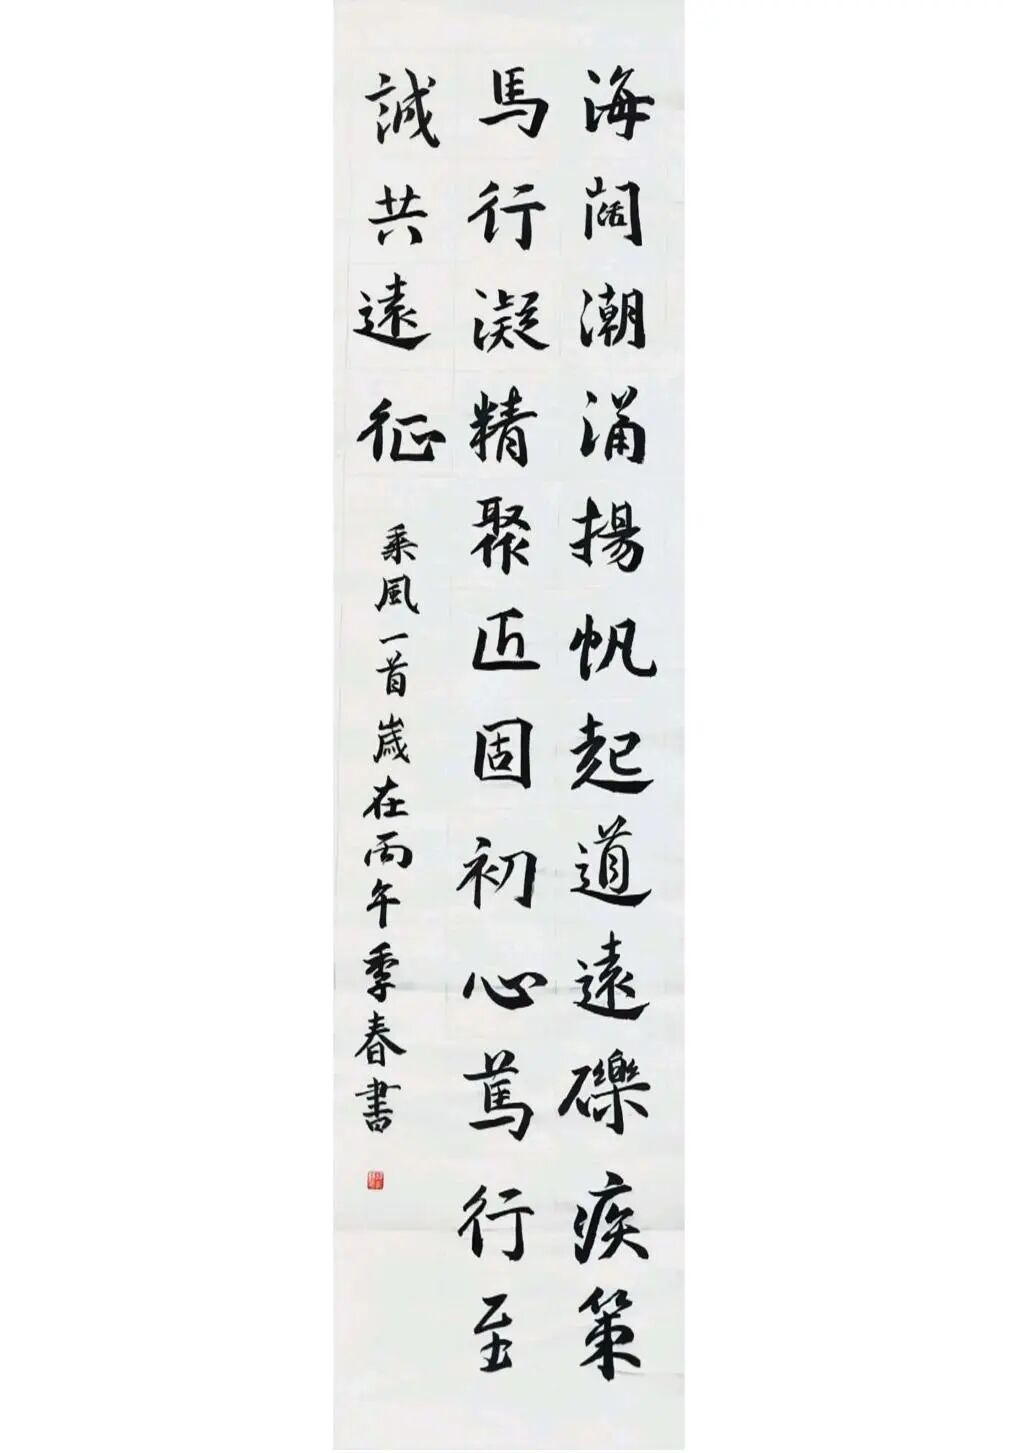 海闊潮涌揚帆起道遠礫疾策
馬行凝精聚匠固初心篤行至
誠共遠征
乘風一首歲在丙午季春書